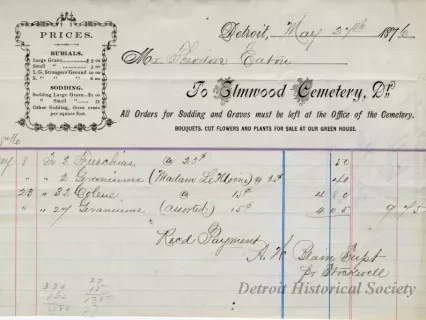 PRICES.
BURIALS.
Large Grave $5 00
Small " 3 00
L.G. Strangers' Ground 10 00
S. " " 6 00
SODDING.
Sodding Large Grave
" Small "
Other Sodding, three cents
per square foot.
Detroit, May 27th 1876
Mr Theodore Eaton
To Elmwood Cemetery, Dr
All Orders for Sodding and Graves must be left at the Office of the Cemetery.
BOUQUETS, CUT FLOWERS AND PLANTS FOR SALE AT OUR GREEN HOUSE.
8 To 2 Fuschias @ 25¢ 50
" " 2 Geraniums (Madam LeMoine) @ 40
" 32 Coleus @ 15¢ 4 80
" " 27 Geraniums (assorted) 15¢ 4 05 9 75
Recd Payment
A. W. Blain Supt
Pr Stockwell
320 27
160 15
480 135
27
Detroit Historical Society